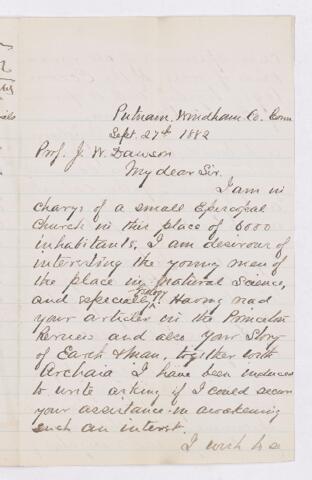 Putnam, Windham Co. Conn
Sept. 27th 1882
Prof. J. W. Dawson
My dear Sir.
I am in
charge of a small Episcopal
Church in this place of 6000
inhabitants, I am desirous of
interesting the young men of
the place in Natural Science,
and especially Geology. Having read
your articles in the Princeton
Review and also your Story
of Earth & Man, together with
Archaia I have been induced
to write asking if I could secure
your assistance in awakening
such an interest.
I wish to